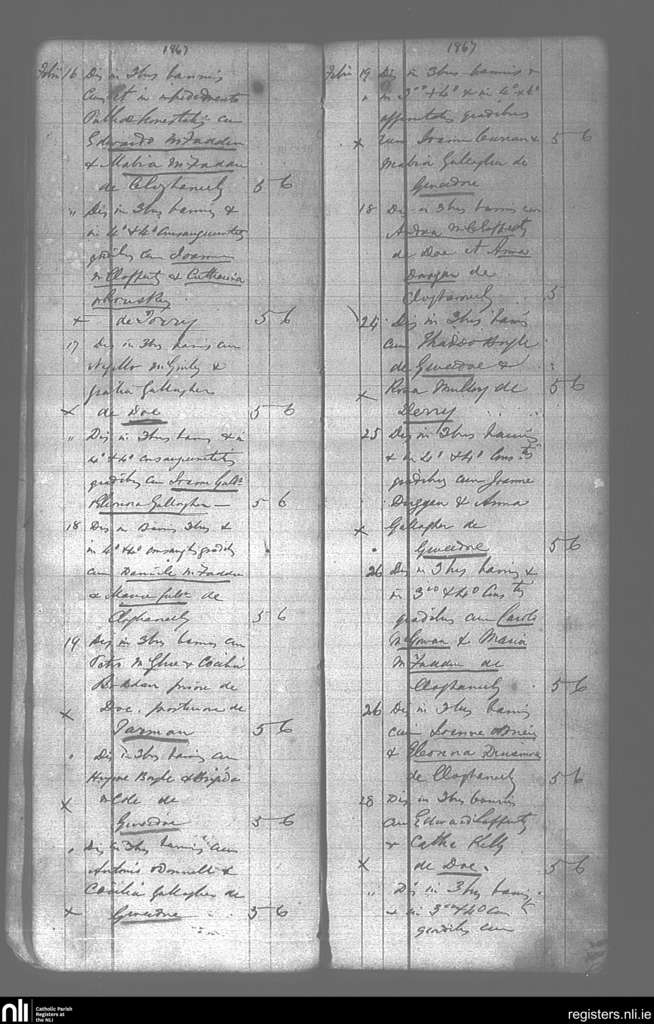 1867
Febii 16 Dis in 3bus bannis
et in impedimento
Edwardo McFadden
& Maria McFadden
de Cloghaneely 5 6
" Dis in 3bus bannis &
in 4° & 4° consanguinitatis
gradibus cum Joanne
McClafferty & Catharina
x de Torry 5 6
17 Dis in 3bus bannis cum
McGinley &
Gratia Gallagher
x de Doe 5 6
" Dis in 3bus bannis & in
4° & 4° consanguinitatis
gradibus cum Joanne Gallr
Eleonora Gallagher — 5 6
18 Dis in Bannis 3bus &
in 4° & 4° gradibs
cum Daniele McFadden
& Maria Gallr de
Cloghaneely 5 6
19 Dis in 3bus bannis cum
& Caecilia
priore de
Doe, posteriore de
x Tarmon 5 6
" Dis in 3bus bannis cum
Hugone Boyle & Brigida
x McCole de
Gweedore 5 6
" Dis in 3bus bannis cum
Antonio O'Donnell &
Caecilia Gallagher de
x Gweedore 5 6
1867
Febii 19 Dis in 3bus bannis &
in 3tio & 4° & in 4° & 4°
affinitatis gradibus
x cum Joanne Curran & 5 6
Maria Gallagher de
Gweedore
18 Dis in 3bus bannis cum
Andrea McClafferty
de Doe et Anna
Doogan de
Cloghaneely 5
24 Dis in 3bus bannis
cum Thaddeo Boyle
de Gweedore &
x Rosa de 5 6
Derry
25 Dis in 3bus bannis
& in 4° & 4° Constis
gradibus cum Joanne
Duggan & Anna
x Gallagher de
Gweedore 5 6
26 Dis in 3bus bannis &
in 3tio & 4° Constis
gradibus cum Carolo
McGowan & Maria
McFadden de
Cloghaneely 5 6
26 Dis in 3bus bannis
cum Joanne O'Brien
& Eleonora
de Cloghaneely 5 6
28 Dis in 3bus bannis
cum Edwardo Lafferty
& Catha Kelly
x de Doe. 5 6
" Dis in 3bus bannis
& in 3tio & 4° Constis
gradibus cum
nli Catholic Parish
Registers at
the NLI
registers.nli.ie